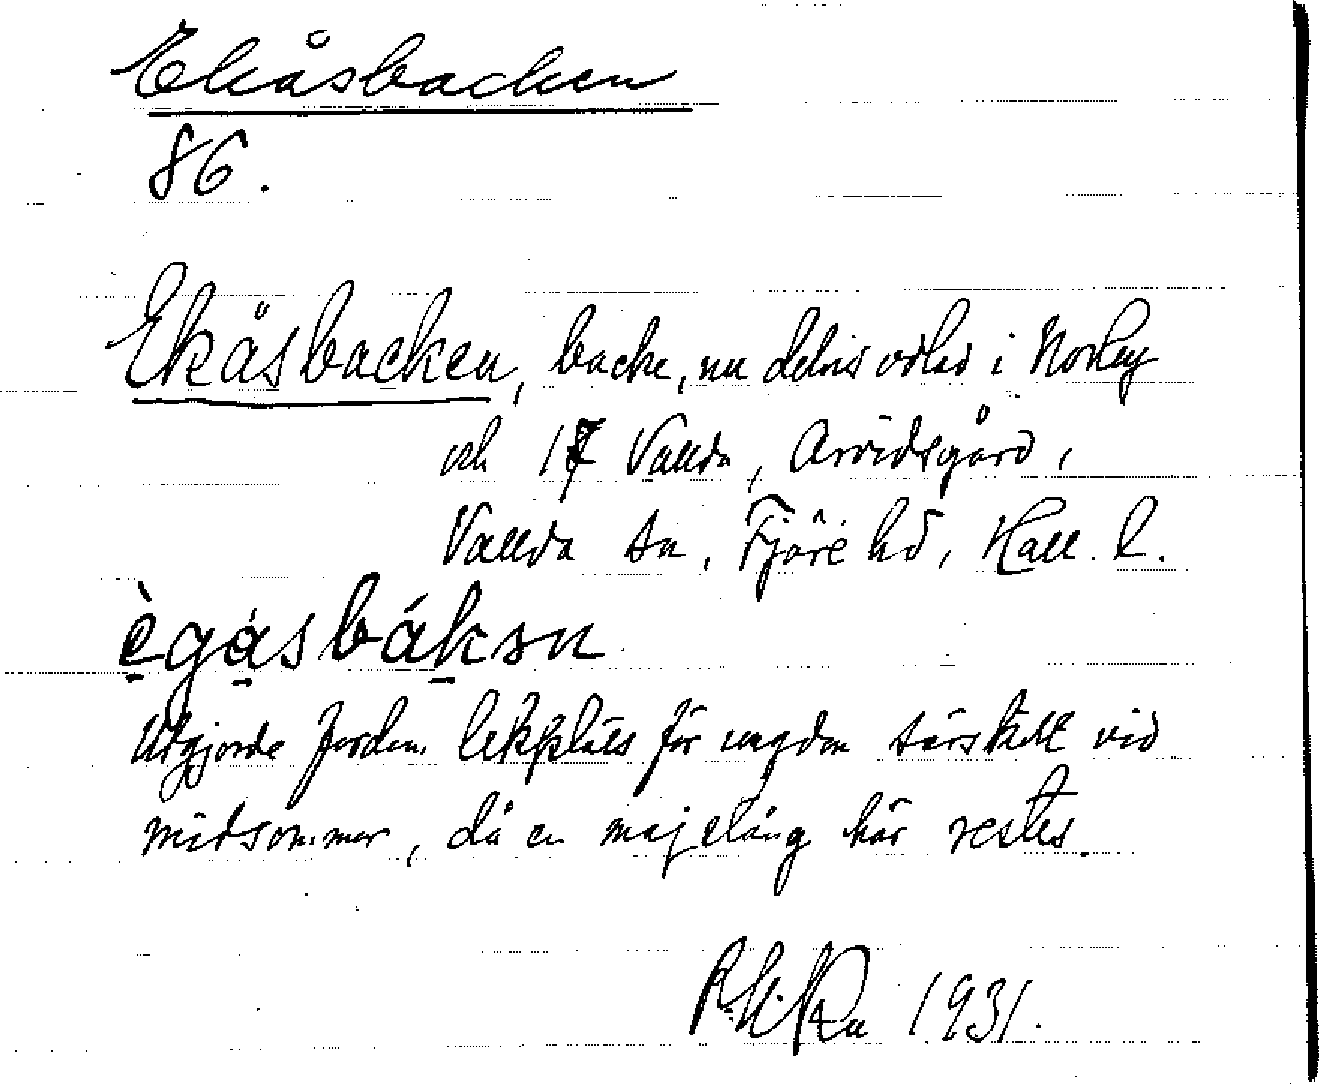 Ekåsbacken
86.
Ekåsbacken, backe, nu delvis odlad i
och 17 Vallda, Arvidsgård,
Vallda sn, Fjäre hd, Hall. l.
ègasbákən
Utgjorde fordom lekplats för ungdom särskilt vid
midsommar, då en majstång här restes.
1931.